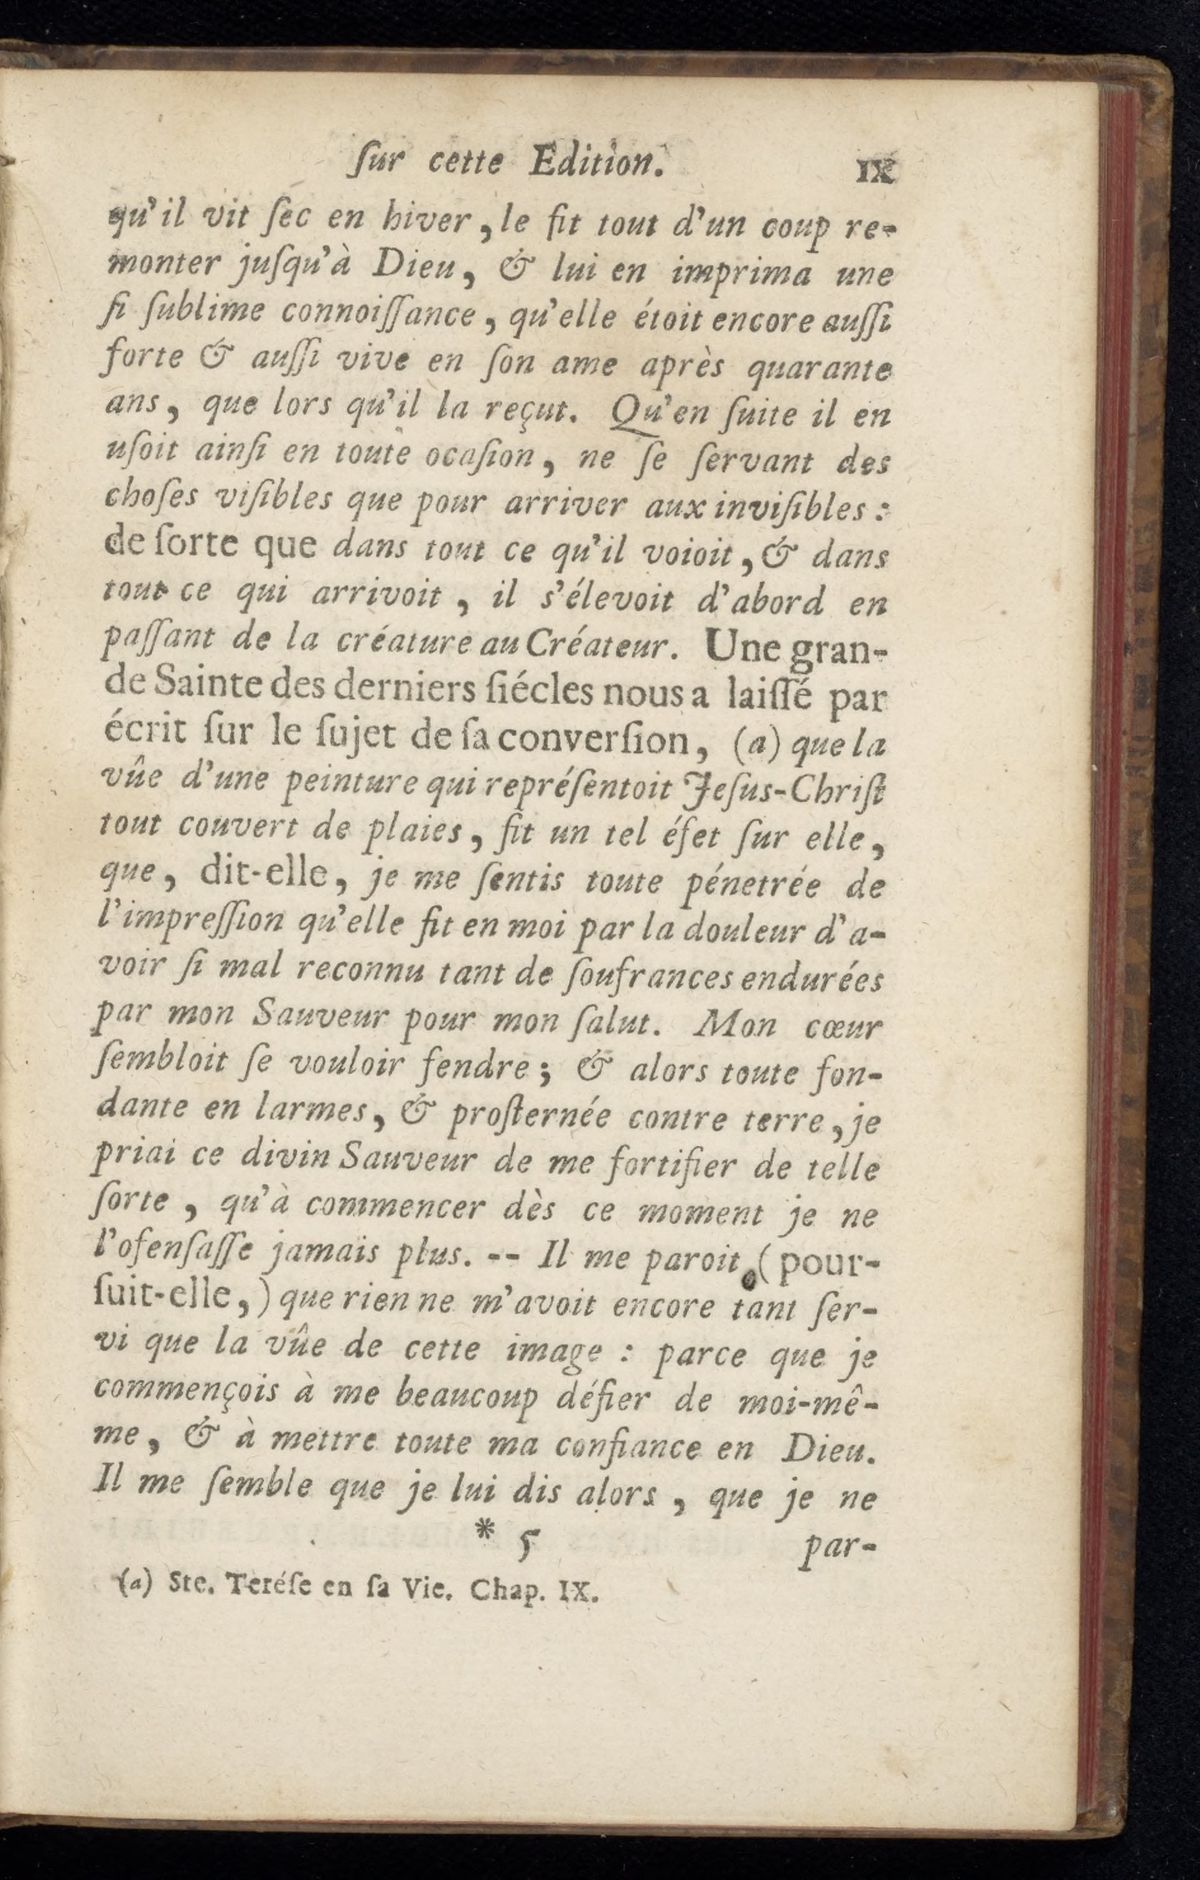 ſur cette Edition. IX
qu'il vit ſec en hiver, le fit tout d'un coup re-
monter juſqu'à Dieu, & lui en imprima une
ſi ſublime connoiſſance, qu'elle étoit encore auſſi
forte & auſſi vive en ſon ame après quarante
ans, que lors qu'il la reçut. Qu'en ſuite il en
uſoit ainſi en toute ocaſion, ne ſe ſervant des
choſes viſibles que pour arriver aux inviſibles :
de ſorte que dans tout ce qu'il voioit, & dans
tout ce qui arrivoit, il s'élevoit d'abord en
paſſant de la créature au Créateur. Une gran-
de Sainte des derniers ſiécles nous a laiſſé par
écrit ſur le ſujet de ſa converſion, (a) que la
vûe d'une peinture qui repréſentoit Jeſus-Chriſt
tout couvert de plaies, fit un tel éfet ſur elle,
que, dit-elle, je me ſentis toute pénetrée de
l'impreſſion qu'elle fit en moi par la douleur d'a-
voir ſi mal reconnu tant de ſoufrances endurées
par mon Sauveur pour mon ſalut. Mon cœur
ſembloit ſe vouloir fendre; & alors toute fon-
dante en larmes, & proſternée contre terre, je
priai ce divin Sauveur de me fortifier de telle
ſorte, qu'à commencer dès ce moment je ne
l'ofenſaſſe jamais plus. -- Il me paroit (pour-
ſuit-elle,) que rien ne m'avoit encore tant ſer-
vi que la vûe de cette image : parce que je
commençois à me beaucoup défier de moi-mê-
me, & à mettre toute ma confiance en Dieu.
Il me ſemble que je lui dis alors, que je ne
* 5 par-
(a) Ste. Teréſe en ſa Vie. Chap. IX.